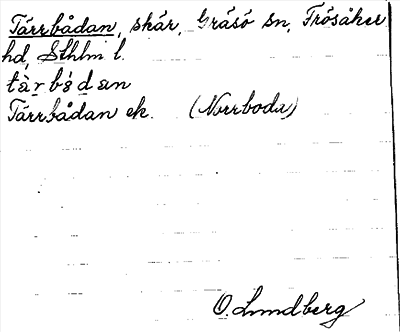 Tärrbådan, skär, Gräsö sn, Frösåker
hd, Sthlm l.
tàrbådan
Tärrbådan ek. (Norrboda)
O. Lundberg